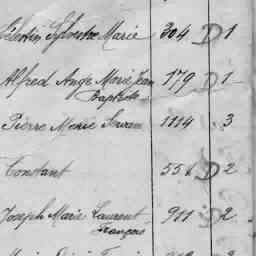 Sylvestre Marie 304 D 1
Alfred Ange Marie Jean 179 D 1
Baptiste
Pierre Marie 1114 3
Constant 556 D 2
Joseph Marie Laurent 911 D 2
François